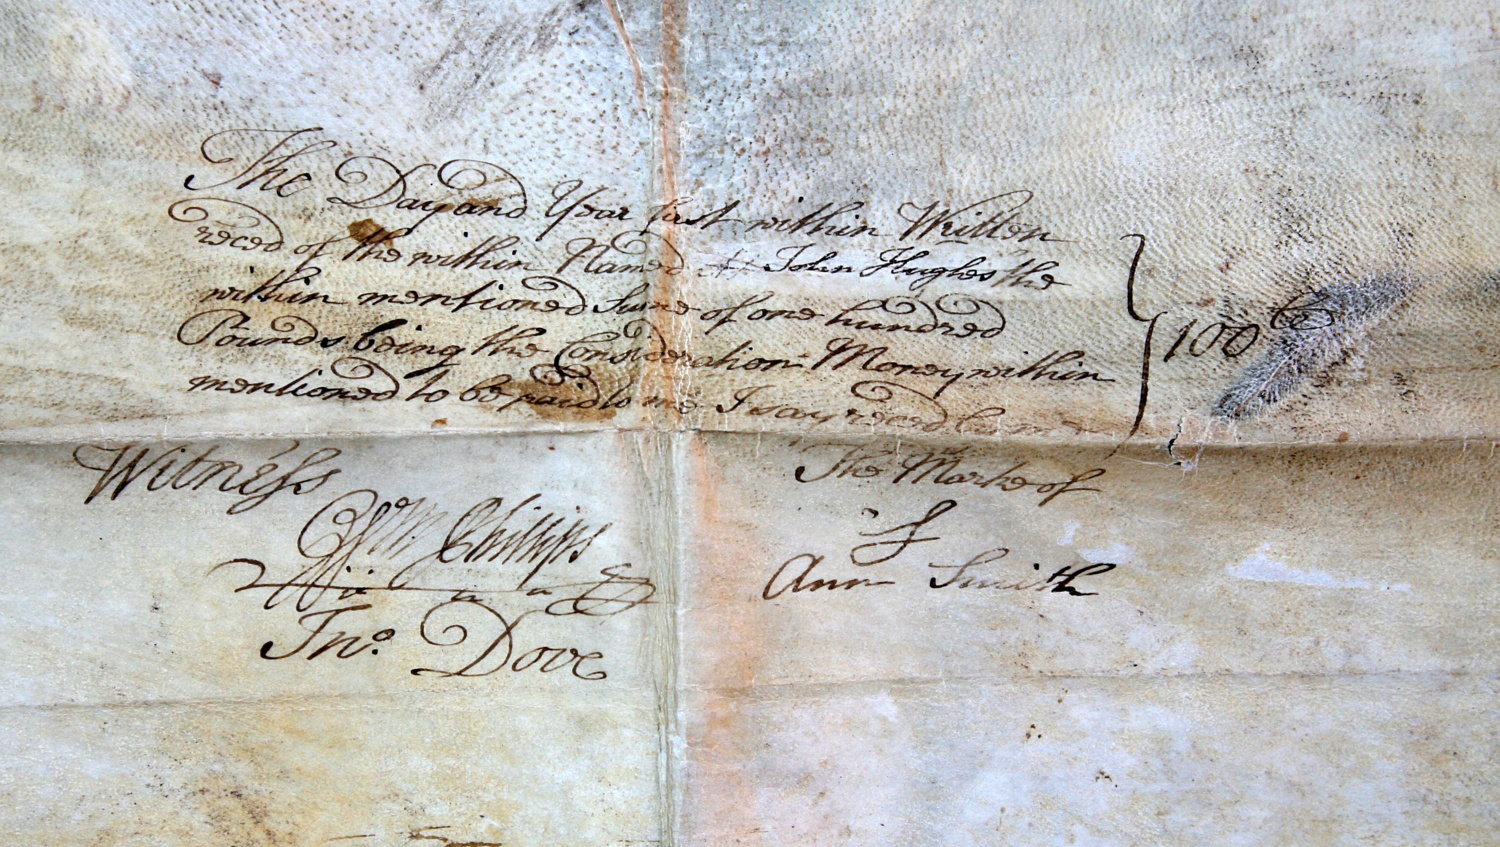 The Day and Year first within Written
reced of the within Named John Hughes the
within mentioned Sume of one hundred
Pounds being the Consideration Money within
mentioned to be paid to me I say reced
100
The Marke of
Witness
Wm Phillips
Ann Smith
Jno. Dove